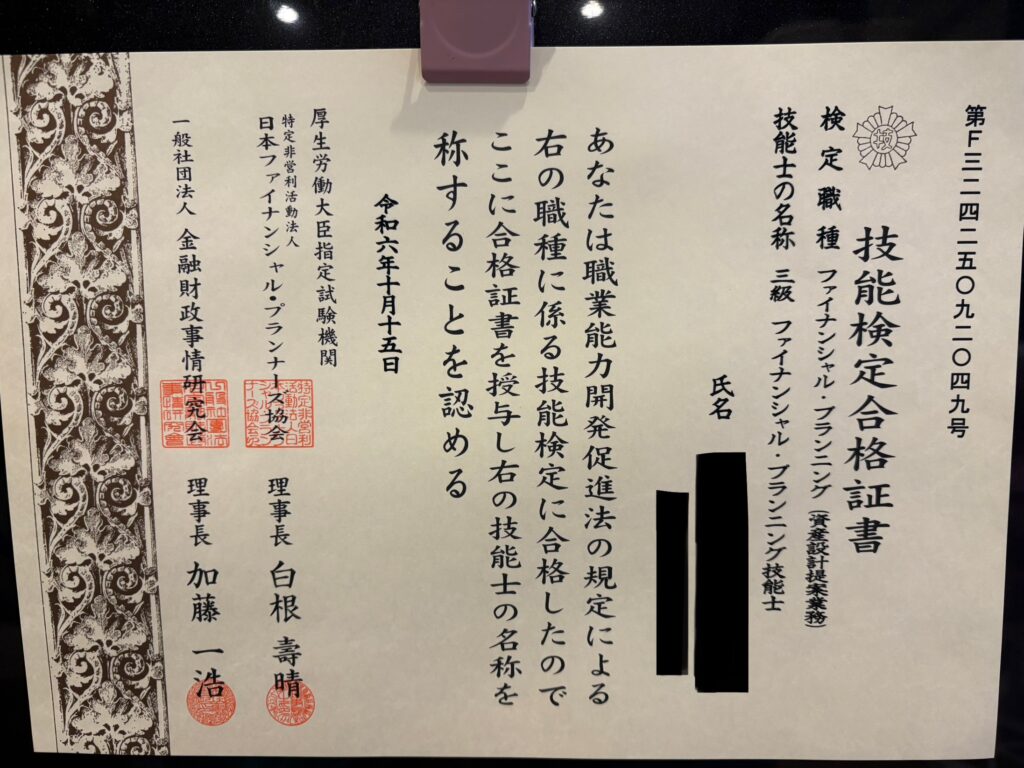 第F三二四二五〇九二〇四九号
技能検定合格証書
検定職種 ファイナンシャル・プランニング(資産設計提案業務)
技能士の名称 三級 ファイナンシャル・プランニング技能士
氏名
あなたは職業能力開発促進法の規定による
右の職種に係る技能検定に合格したので
ここに合格証書を授与し右の技能士の名称を
称することを認める
令和六年十月十五日
厚生労働大臣指定試験機関
特定非営利活動法人
日本ファイナンシャル・プランナーズ協会 理事長 白根 壽晴
一般社団法人 金融財政事情研究会 理事長 加藤 一浩